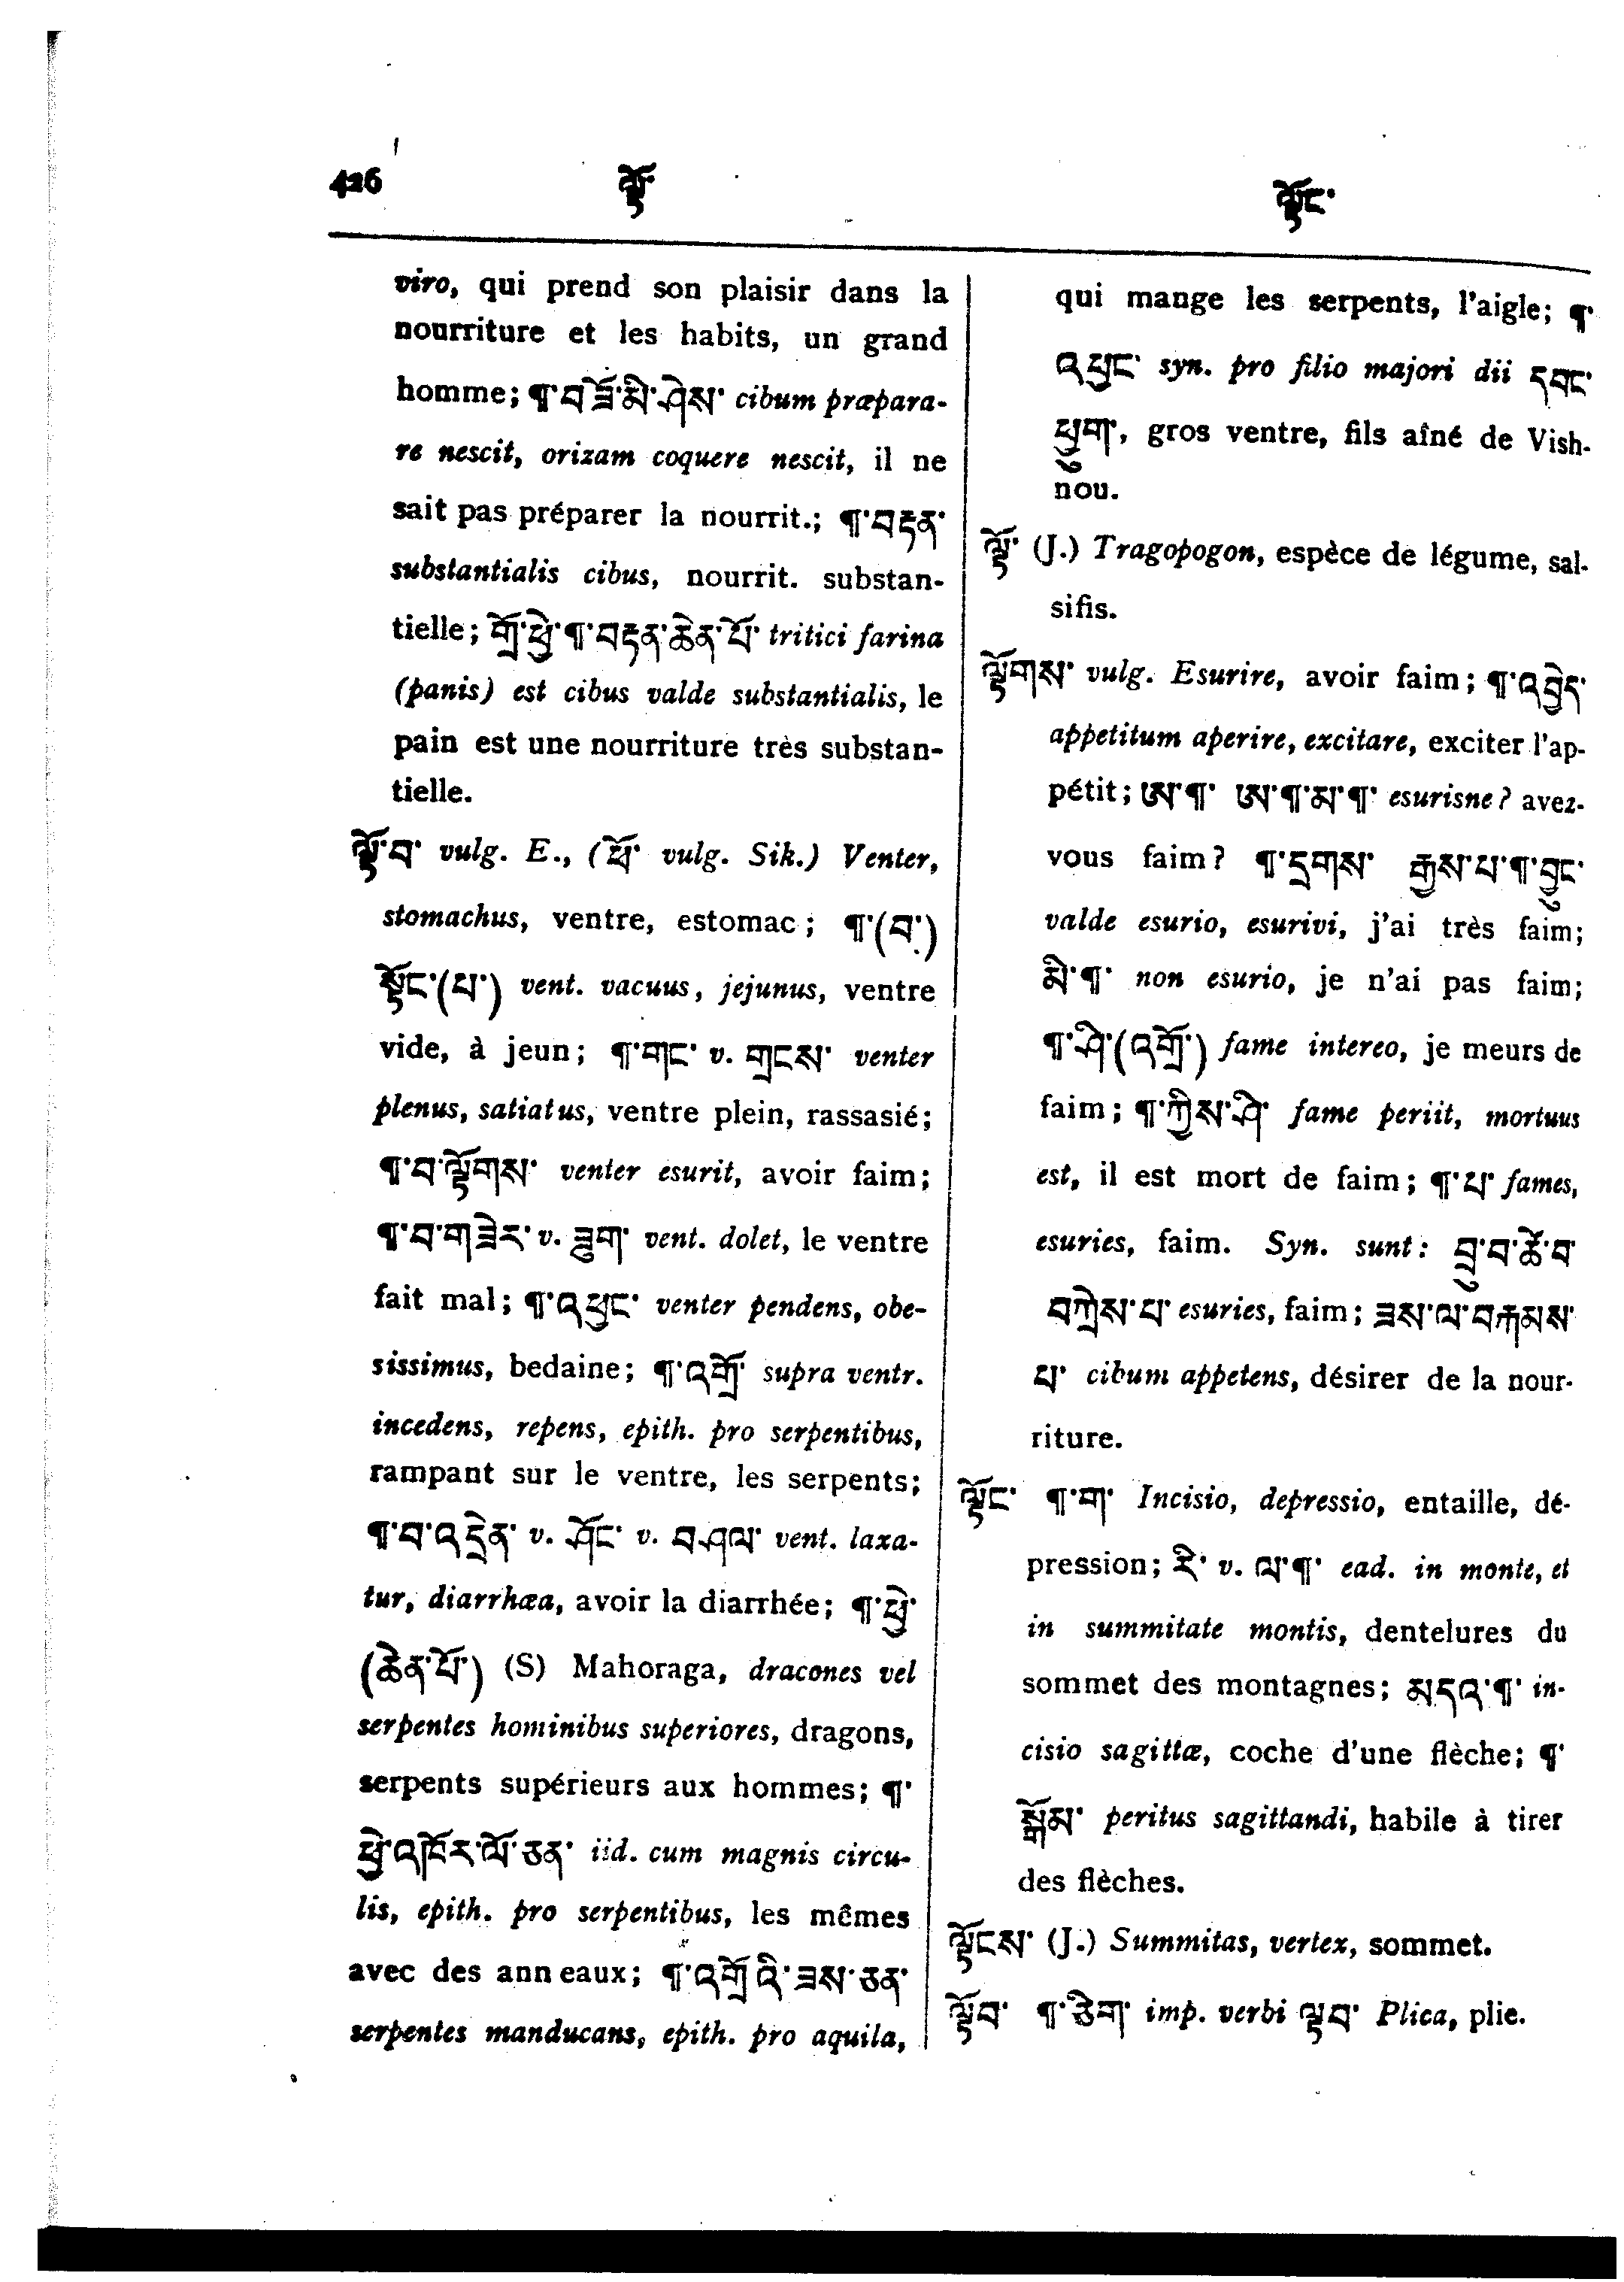 426 ལྟོ་ ལྟོང་
viro, qui prend son plaisir dans la
nourriture et les habits, un grand
homme; ¶་བཟོ་མི་ཤེས་ cibum præpara-
re nescit, orizam coquere nescit, il ne
sait pas préparer la nourrit.; ¶་བརྟན་
substantialis cibus, nourrit. substan-
tielle; གྲོ་ཕྱེ་¶་བརྟན་ཆེན་པོ་ tritici farina
(panis) est cibus valde substantialis, le
pain est une nourriture très substan-
tielle.
ལྟོ་བ་ vulg. E., (ཕོ་ vulg. Sik.) Venter,
stomachus, ventre, estomac; ¶་(བ་)
སྟོང་(པ་) vent. vacuus, jejunus, ventre
vide, à jeun; ¶་གང་ v. གྲངས་ venter
plenus, satiatus, ventre plein, rassasié;
¶་བ་ལྟོགས་ venter esurit, avoir faim;
¶་བ་གཟེར་ v. ཟུག་ vent. dolet, le ventre
fait mal; ¶་འཕྱང་ venter pendens, obe-
sissimus, bedaine; ¶་འགྲོ་ supra ventr.
incedens, repens, epith. pro serpentibus,
rampant sur le ventre, les serpents;
¶་བ་འདྲེན་ v. ཤོང་ v. བཤལ་ vent. laxa-
tur, diarrhœa, avoir la diarrhée; ¶་ཕྱེ་
(ཆེན་པོ་) (S) Mahoraga, dracones vel
serpentes hominibus superiores, dragons,
serpents supérieurs aux hommes; ¶་
ཕྱེ་འཁོར་ལོ་ཅན་ iid. cum magnis circu-
lis, epith. pro serpentibus, les mêmes
avec des anneaux; ¶་འགྲོའི་ཟས་ཅན་
serpentes manducans, epith. pro aquila,
qui mange les serpents, l'aigle; ¶་
འཕྱང་ syn. pro filio majori dii དབང་
ཕྱུག་, gros ventre, fils aîné de Vish-
nou.
ལྟོ་ (J.) Tragopogon, espèce de légume, sal-
sifis.
ལྟོགས་ vulg. Esurire, avoir faim; ¶་འབྱེད་
appetitum aperire, excitare, exciter l'ap-
pétit; ཨ་¶་ ཨ་¶་མ་¶་ esurisne? avez-
vous faim? ¶་དྲགས་ རྒྱས་པ་¶་བྱུང་
valde esurio, esurivi, j'ai très faim;
མི་¶་ non esurio, je n'ai pas faim;
¶་ཤི་(འགྲོ་) fame intereo, je meurs de
faim; ¶་ཀྱིས་ཤི་ fame periit, mortuus
est, il est mort de faim; ¶་པ་ fames,
esuries, faim. Syn. sunt: བྲུ་བ་ཚོ་བ་
བཀྲེས་པ་ esuries, faim; ཟས་ལ་བརྐམས་
པ་ cibum appetens, désirer de la nour-
riture.
ལྟོང་ ¶་ག་ Incisio, depressio, entaille, dé-
pression; རི་ v. ལ་¶་ ead. in monte, et
in summitate montis, dentelures du
sommet des montagnes; མདའ་¶་ in-
cisio sagittæ, coche d'une flèche; ¶་
སྒྲོམ་ peritus sagittandi, habile à tirer
des flèches.
ལྟོངས་ (J.) Summitas, vertex, sommet.
ལྟོབ་ ¶་ཅིག་ imp. verbi ལྟབ་ Plica, plie.